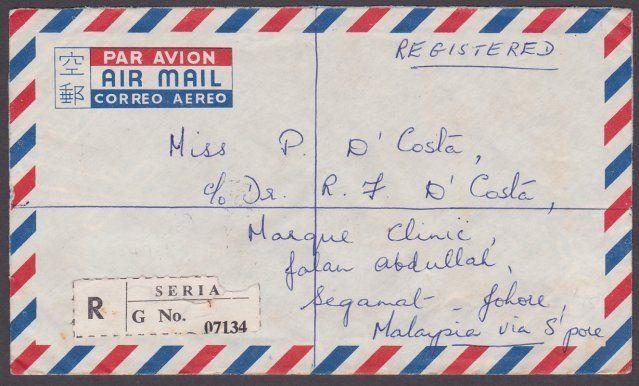 空郵
PAR AVION
AIR MAIL
CORREO AEREO
REGISTERED
Miss P. D'Costa,
c/o Dr. R. F. D'Costa,
Marque Clinic,
Jalan Abdullah,
Segamat - Johore,
Malaysia via S'pore
R
SERIA
G No. 07134